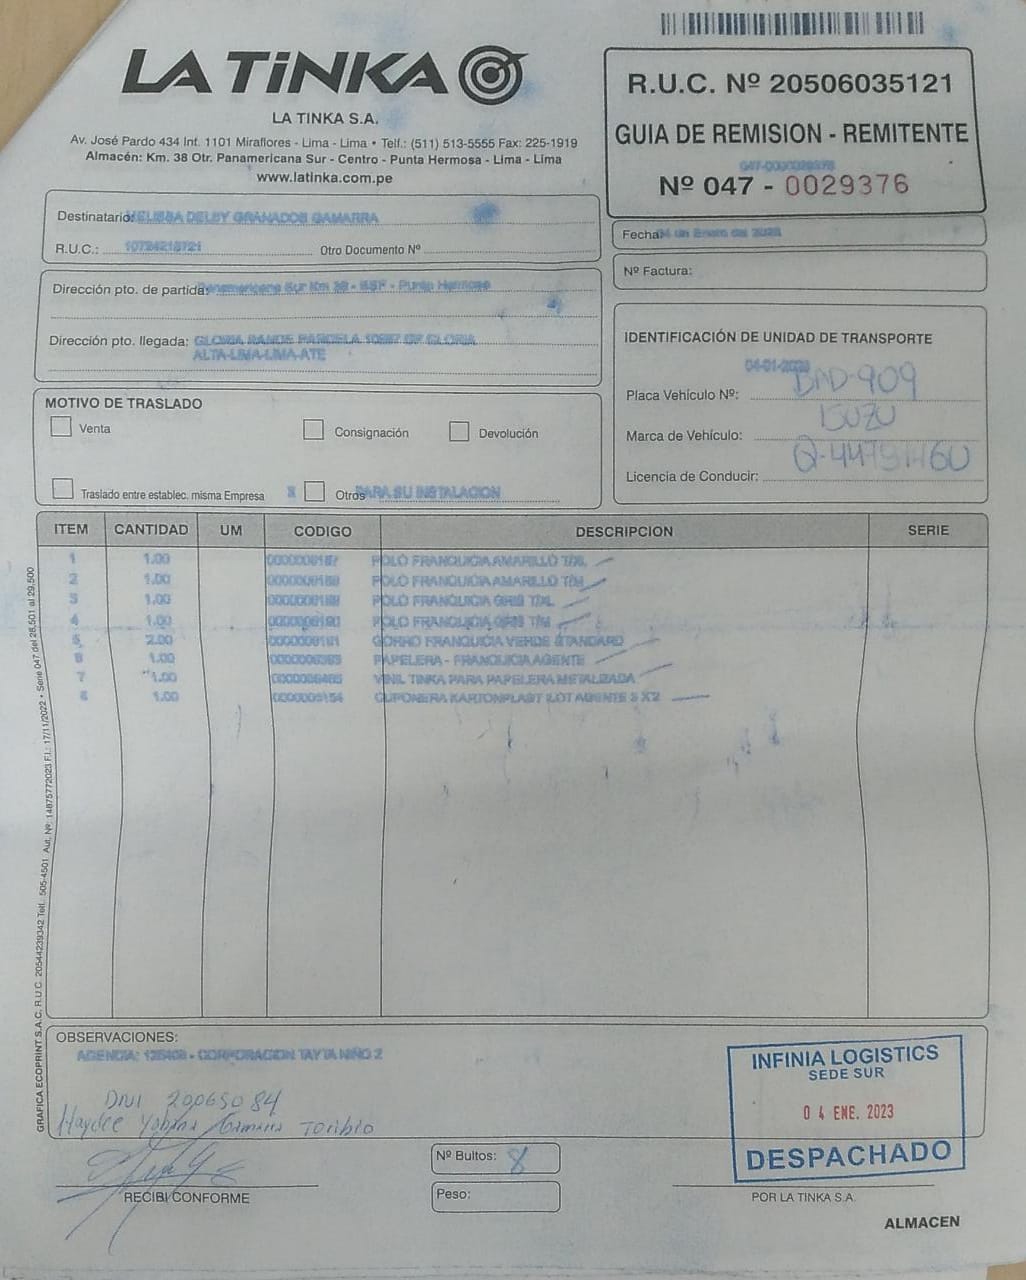 LA TiNKA
LA TINKA S.A.
Av. José Pardo 434 Int. 1101 Miraflores - Lima - Lima • Telf.: (511) 513-5555 Fax: 225-1919
Almacén: Km. 38 Otr. Panamericana Sur - Centro - Punta Hermosa - Lima - Lima
www.latinka.com.pe
R.U.C. Nº 20506035121
GUIA DE REMISION - REMITENTE
Nº 047 - 0029376
Destinatario: MELISSA DELSY GRANADOS GAMARRA
R.U.C.: 10724218721 Otro Documento Nº
Fecha: de Enero del
Nº Factura:
Dirección pto. de partida: Panamericana Sur Km 38 - - Punta Hermosa
Dirección pto. llegada: GLORIA GLORIA
ALTA-LIMA-LIMA-ATE
IDENTIFICACIÓN DE UNIDAD DE TRANSPORTE
04-01-2023
Placa Vehículo Nº: BAD-909
Marca de Vehículo: ISUZU
Licencia de Conducir:
MOTIVO DE TRASLADO
Venta
Consignación
Devolución
Traslado entre establec. misma Empresa
X Otros PARA SU INSTALACION
ITEM CANTIDAD UM CODIGO DESCRIPCION SERIE
1 1.00 POLO FRANQUICIA AMARILLO T/XL
2 1.00 POLO FRANQUICIA AMARILLO T/M
3 1.00 POLO FRANQUICIA GRIS T/XL
4 1.00 POLO FRANQUICIA GRIS T/M
5 2.00 GORRO FRANQUICIA VERDE STANDARD
6 1.00 PAPELERA - FRANQUICIA AGENTE
7 1.00 VINIL TINKA PARA PAPELERA METALIZADA
8 1.00 CUPONERA KARTONPLAST ILOT AGENTE 3 X2
GRAFICA ECOPRINT S.A.C. R.U.C. 20544239342 Telf.: 505-4501 Aut. Nº: 14875772023 F.I.: 17/11/2022 • Serie 047 del 28,501 al 29,500
OBSERVACIONES:
AGENCIA: - CORPORACION TAYTA NIÑO 2
DNI 20065084
Haydee Toribio
RECIBI CONFORME
Nº Bultos: 8
Peso:
INFINIA LOGISTICS
SEDE SUR
04 ENE. 2023
DESPACHADO
POR LA TINKA S.A.
ALMACEN